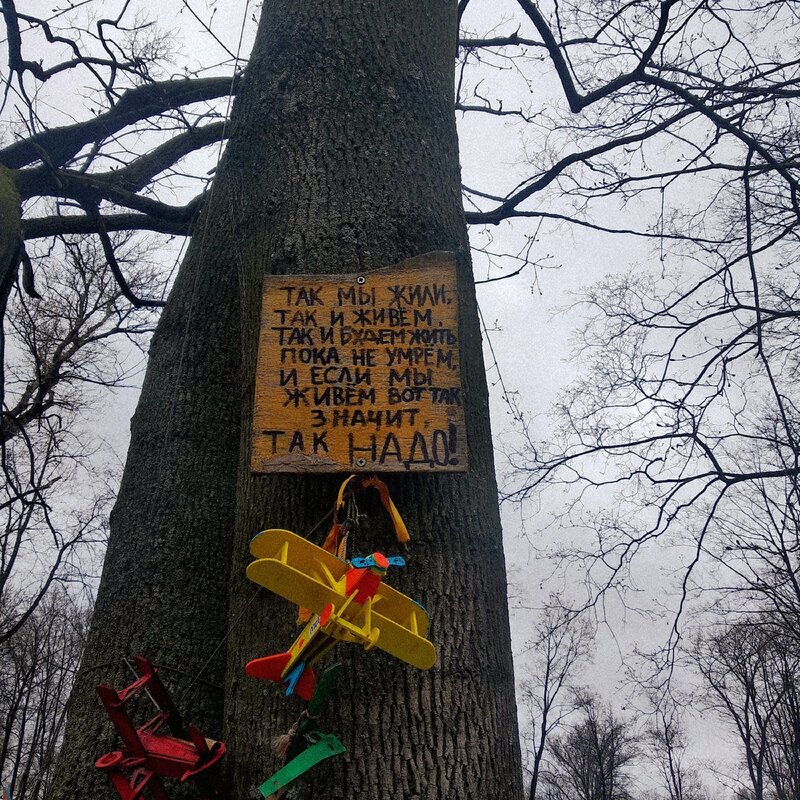 ТАК МЫ ЖИЛИ,
ТАК И ЖИВЁМ
ТАК И БУДЕМ ЖИТЬ
ПОКА НЕ УМРЁМ,
И ЕСЛИ МЫ
ЖИВЁМ ВОТ ТАК
ЗНАЧИТ,
ТАК НАДО!